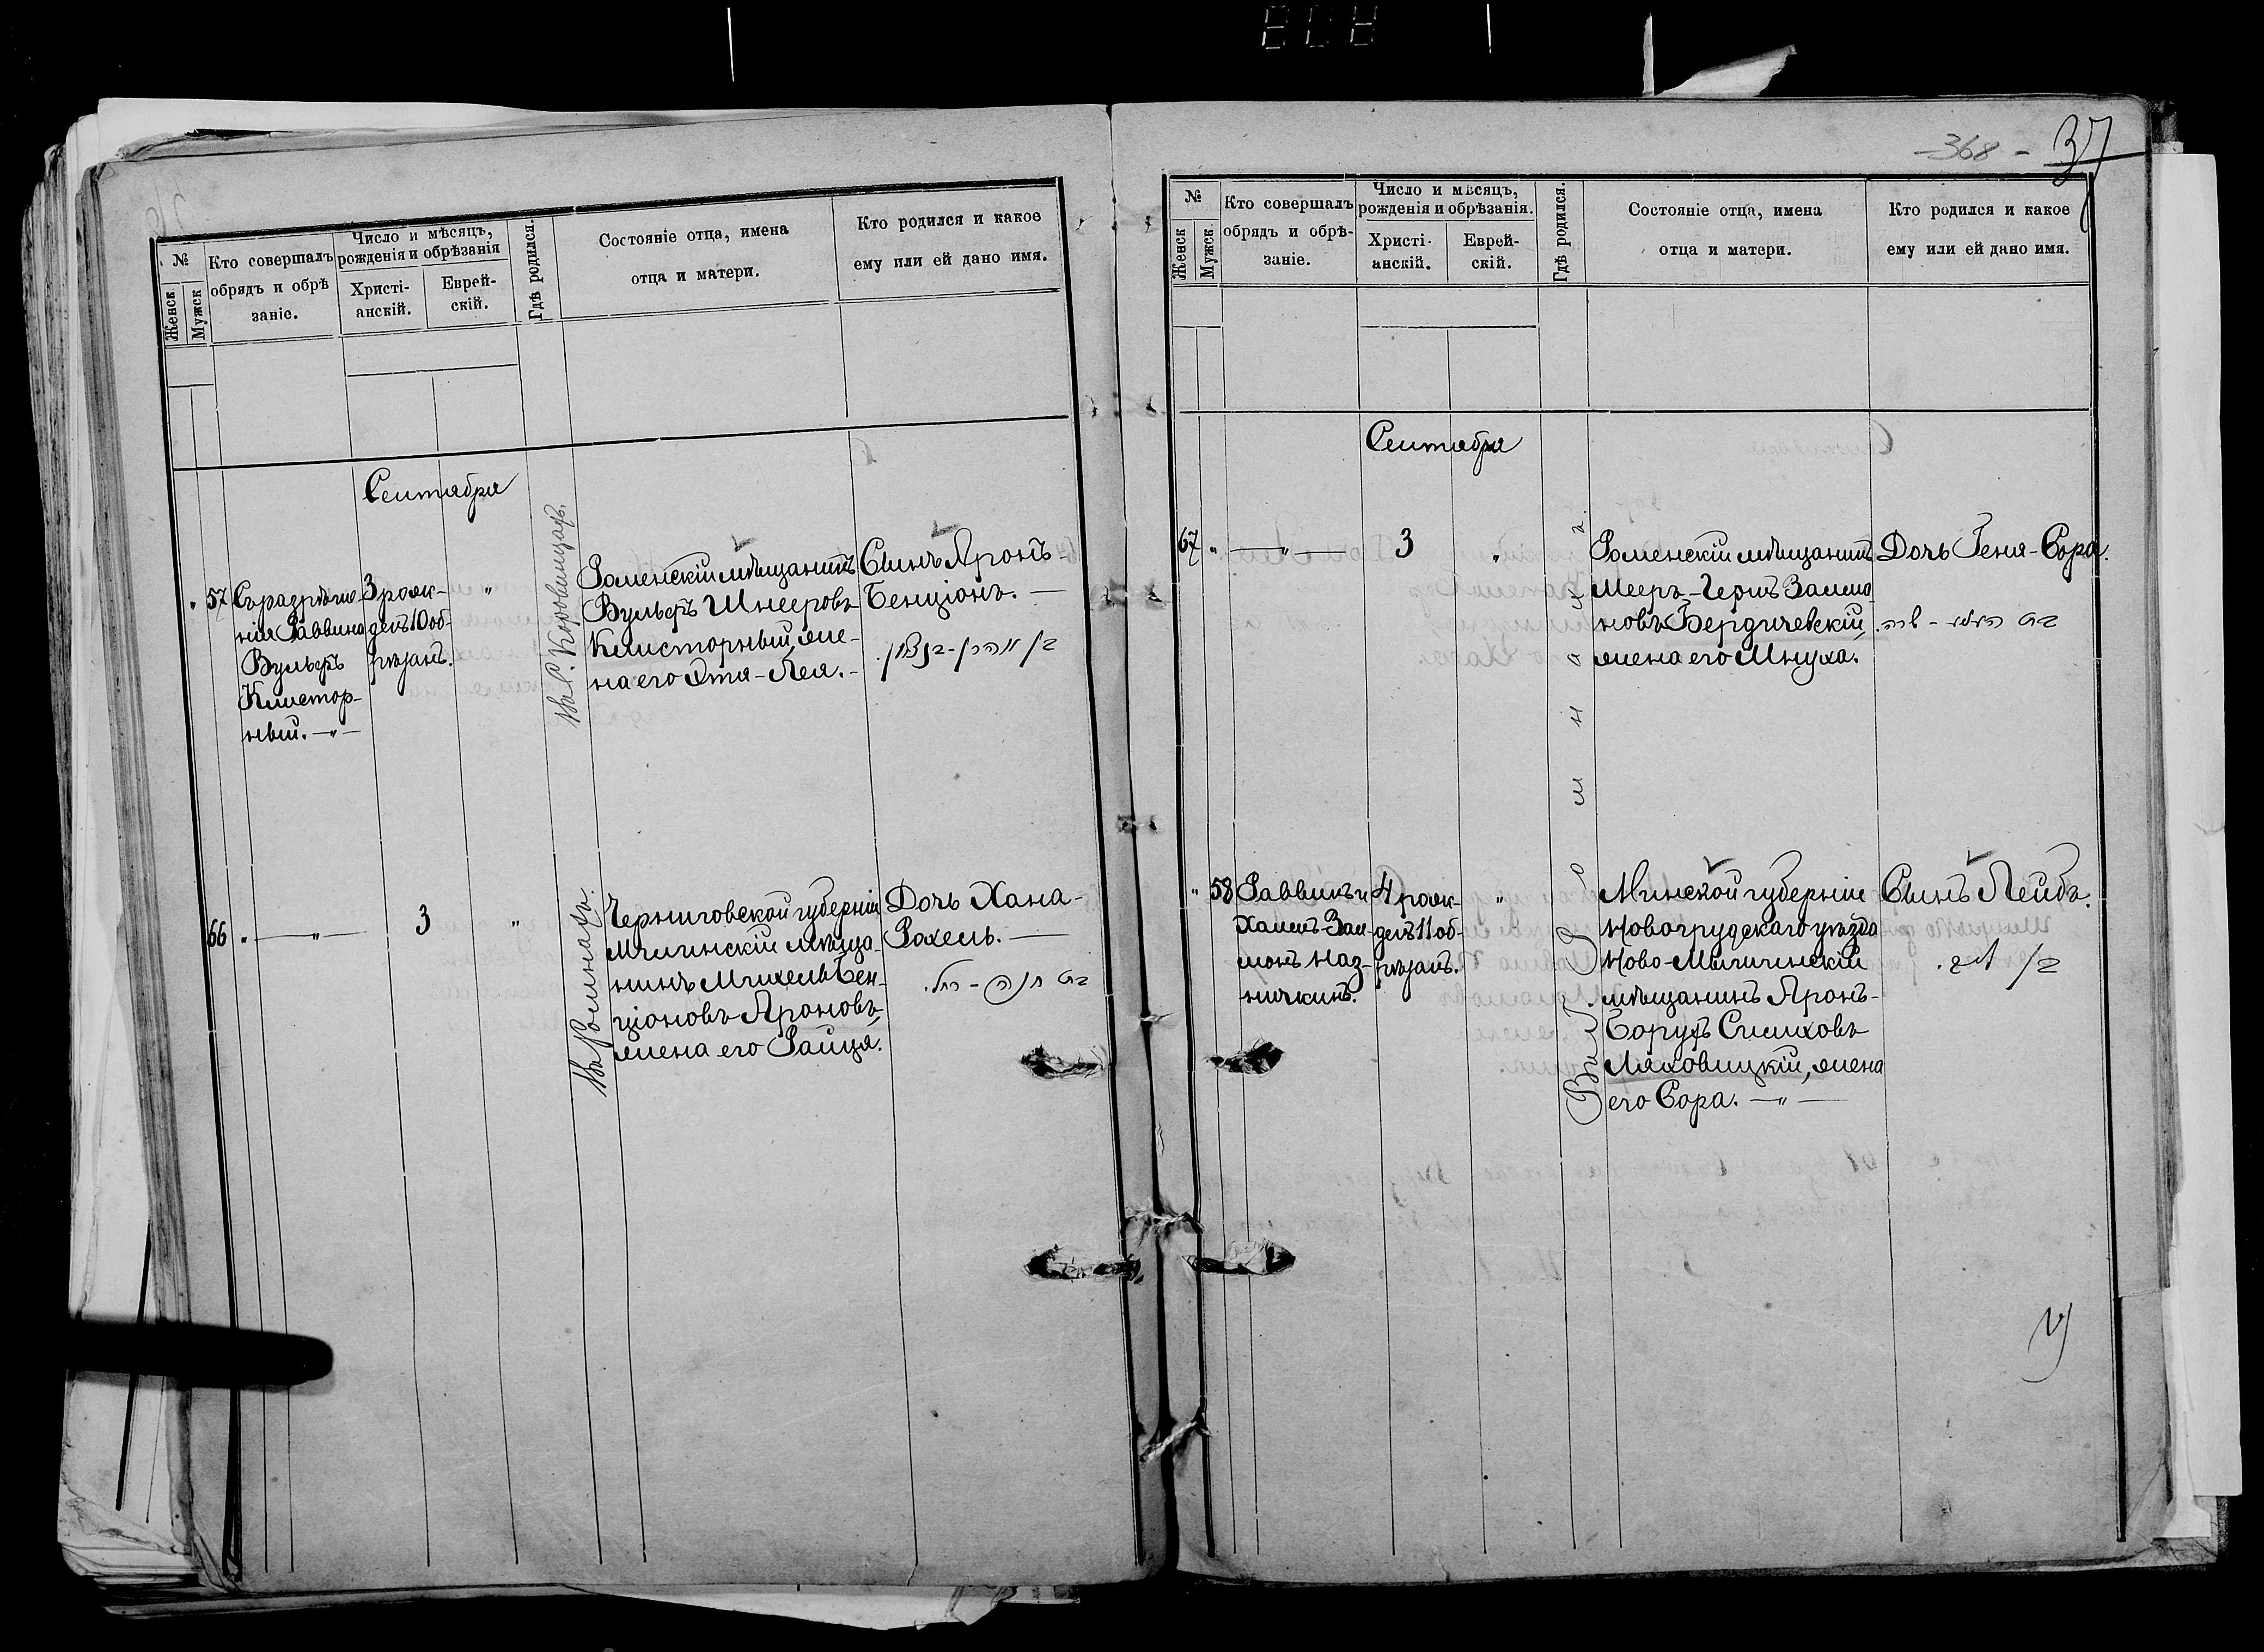 №
Женск
Мужск
Кто совершалъ
обрядъ и обрѣ
заніе.
Число и мѣсяцъ,
рожденія и обрѣзанія
Христі-
анскій.
Еврей-
скій.
Гдѣ родился.
Состояніе отца, имена
отца и матери.
Кто родился и какое
ему или ей дано имя.
Сентября
" 57
Съ разрѣше-
нія Раввина
Вульфъ
Клистор-
ный. — " —
3 рож-
денъ 10 об-
рѣзанъ.
"
Роменскій мѣщанинъ
Вульфъ Шнееровъ
Клисторный, же-
на его Этя-Лея. -
Сынъ Аронъ
Бенціонъ. —
בן אהרן-בנציון.
66 "
— " —
3
"
Въ Ромнахъ.
Черниговской губерніи
Мглинскій мѣща-
нинъ Михель Бен-
ціоновъ Ароновъ,
жена его Райця.
Дочь Хана-
Рохель. —
בת חנה - רחל.
- 368 - 37
№
Женск
Мужск.
Кто совершалъ
обрядъ и обрѣ-
заніе.
Число и мѣсяцъ,
рожденія и обрѣзанія.
Христі-
анскій.
Еврей-
скій.
Гдѣ родился.
Состояніе отца, имена
отца и матери.
Кто родился и какое
ему или ей дано имя.
Сентября
67 "
— " —
3
"
Роменскій мѣщанинъ
Мееръ-Герцъ Залмо-
новъ Бердичевскій,
жена его Мнуха.
Дочь Геня-Сора.
" 58
Раввинъ и
Хаимъ Зал-
монъ Наз-
ничкинъ.
4 рож-
денъ 11 об-
рѣзанъ.
"
Въ г. Р о м н а х ъ.
Минской губерніи
Новогрудскаго уѣзда
Ново-Мышинскій
мѣщанинъ Аронъ-
Борухъ Симховъ
Ляховицкій, жена
его Сора. — " —
Сынъ Лейбъ.
בן ליב.